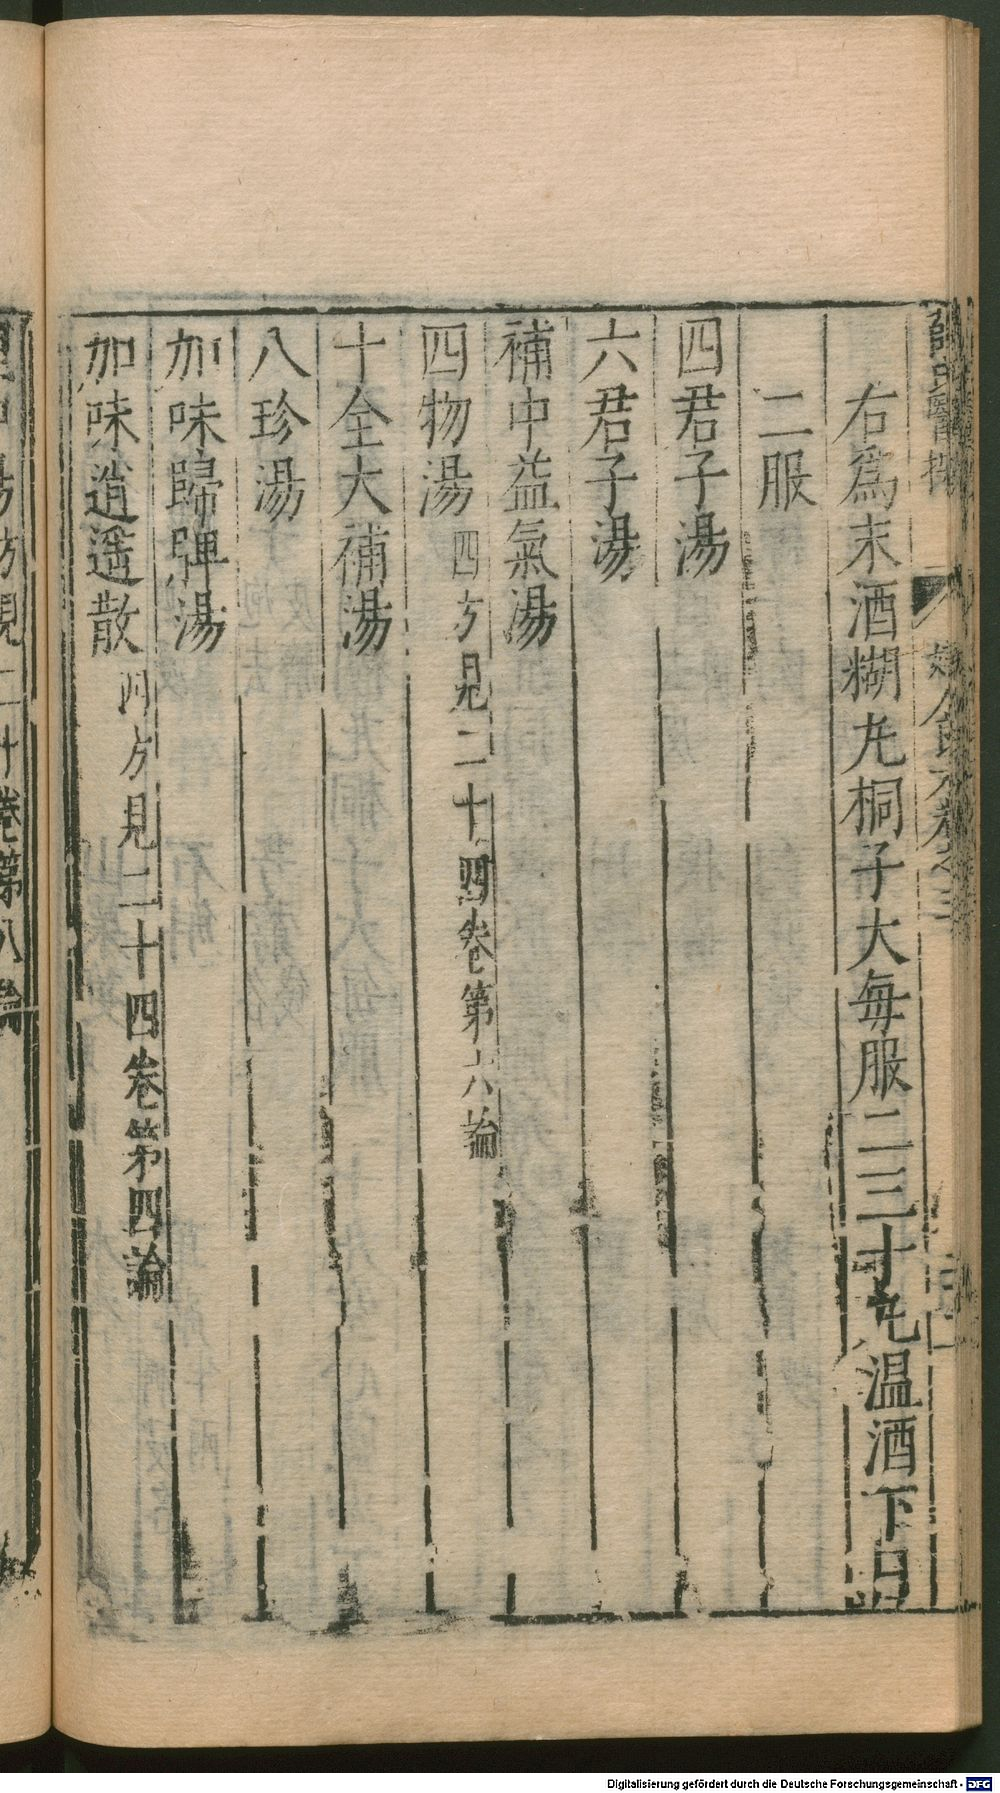 右爲末酒糊丸桐子大每服二三十丸温酒下日
二服
四君子湯
六君子湯
補中益氣湯
四物湯 四方見二十四卷第六論
十全大補湯
八珍湯
加味歸脾湯
加味逍遥散 四方見二十四卷第四論
方見二十卷第八論
Digitalisierung gefördert durch die Deutsche Forschungsgemeinschaft - DFG